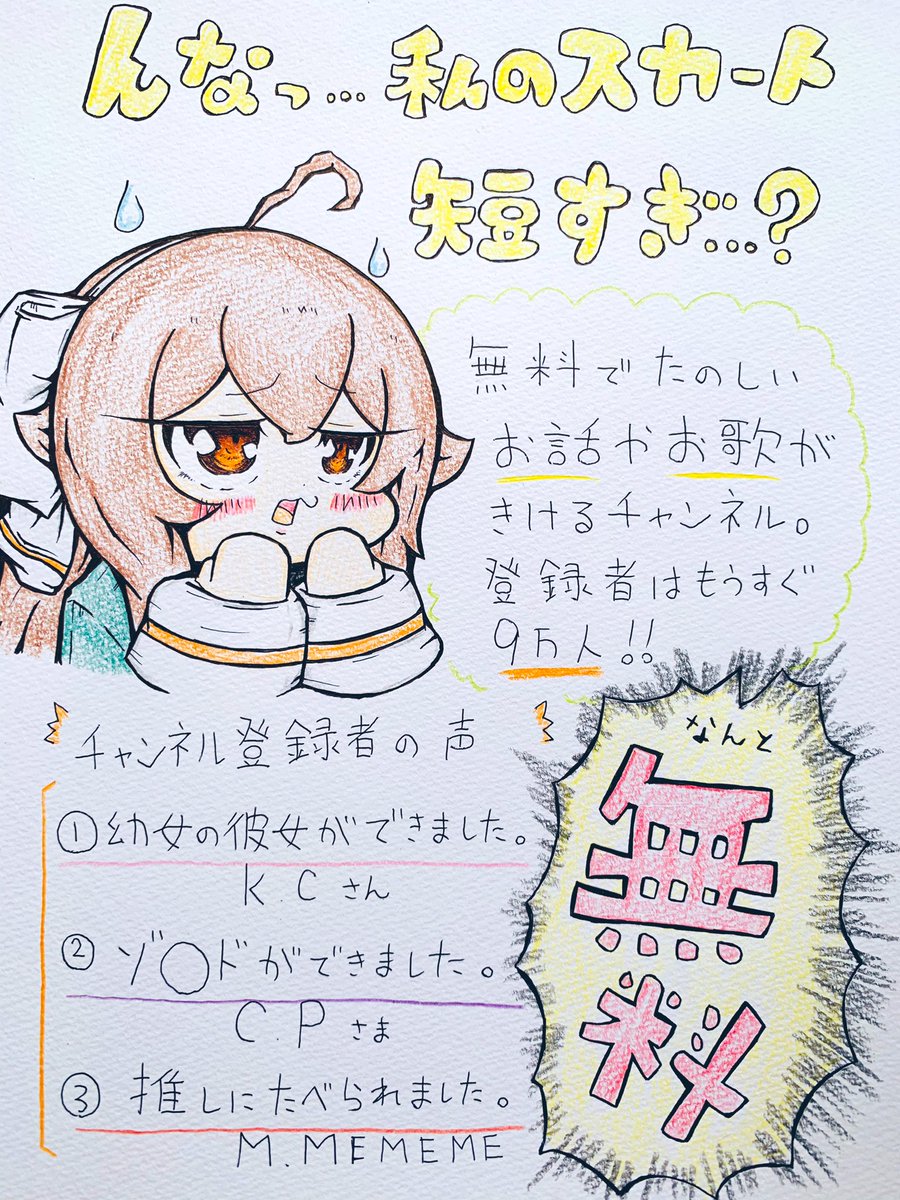 んなっ…私のスカート
短すぎ…?
無料でたのしい
お話やお歌が
きけるチャンネル。
登録者はもうすぐ
9万人!!
チャンネル登録者の声
①幼女の彼女ができました。
K.Cさん
②ゾ◯ドができました。
C.Pさま
③推しにたべられました。
M.MEMEME
なんと
無料